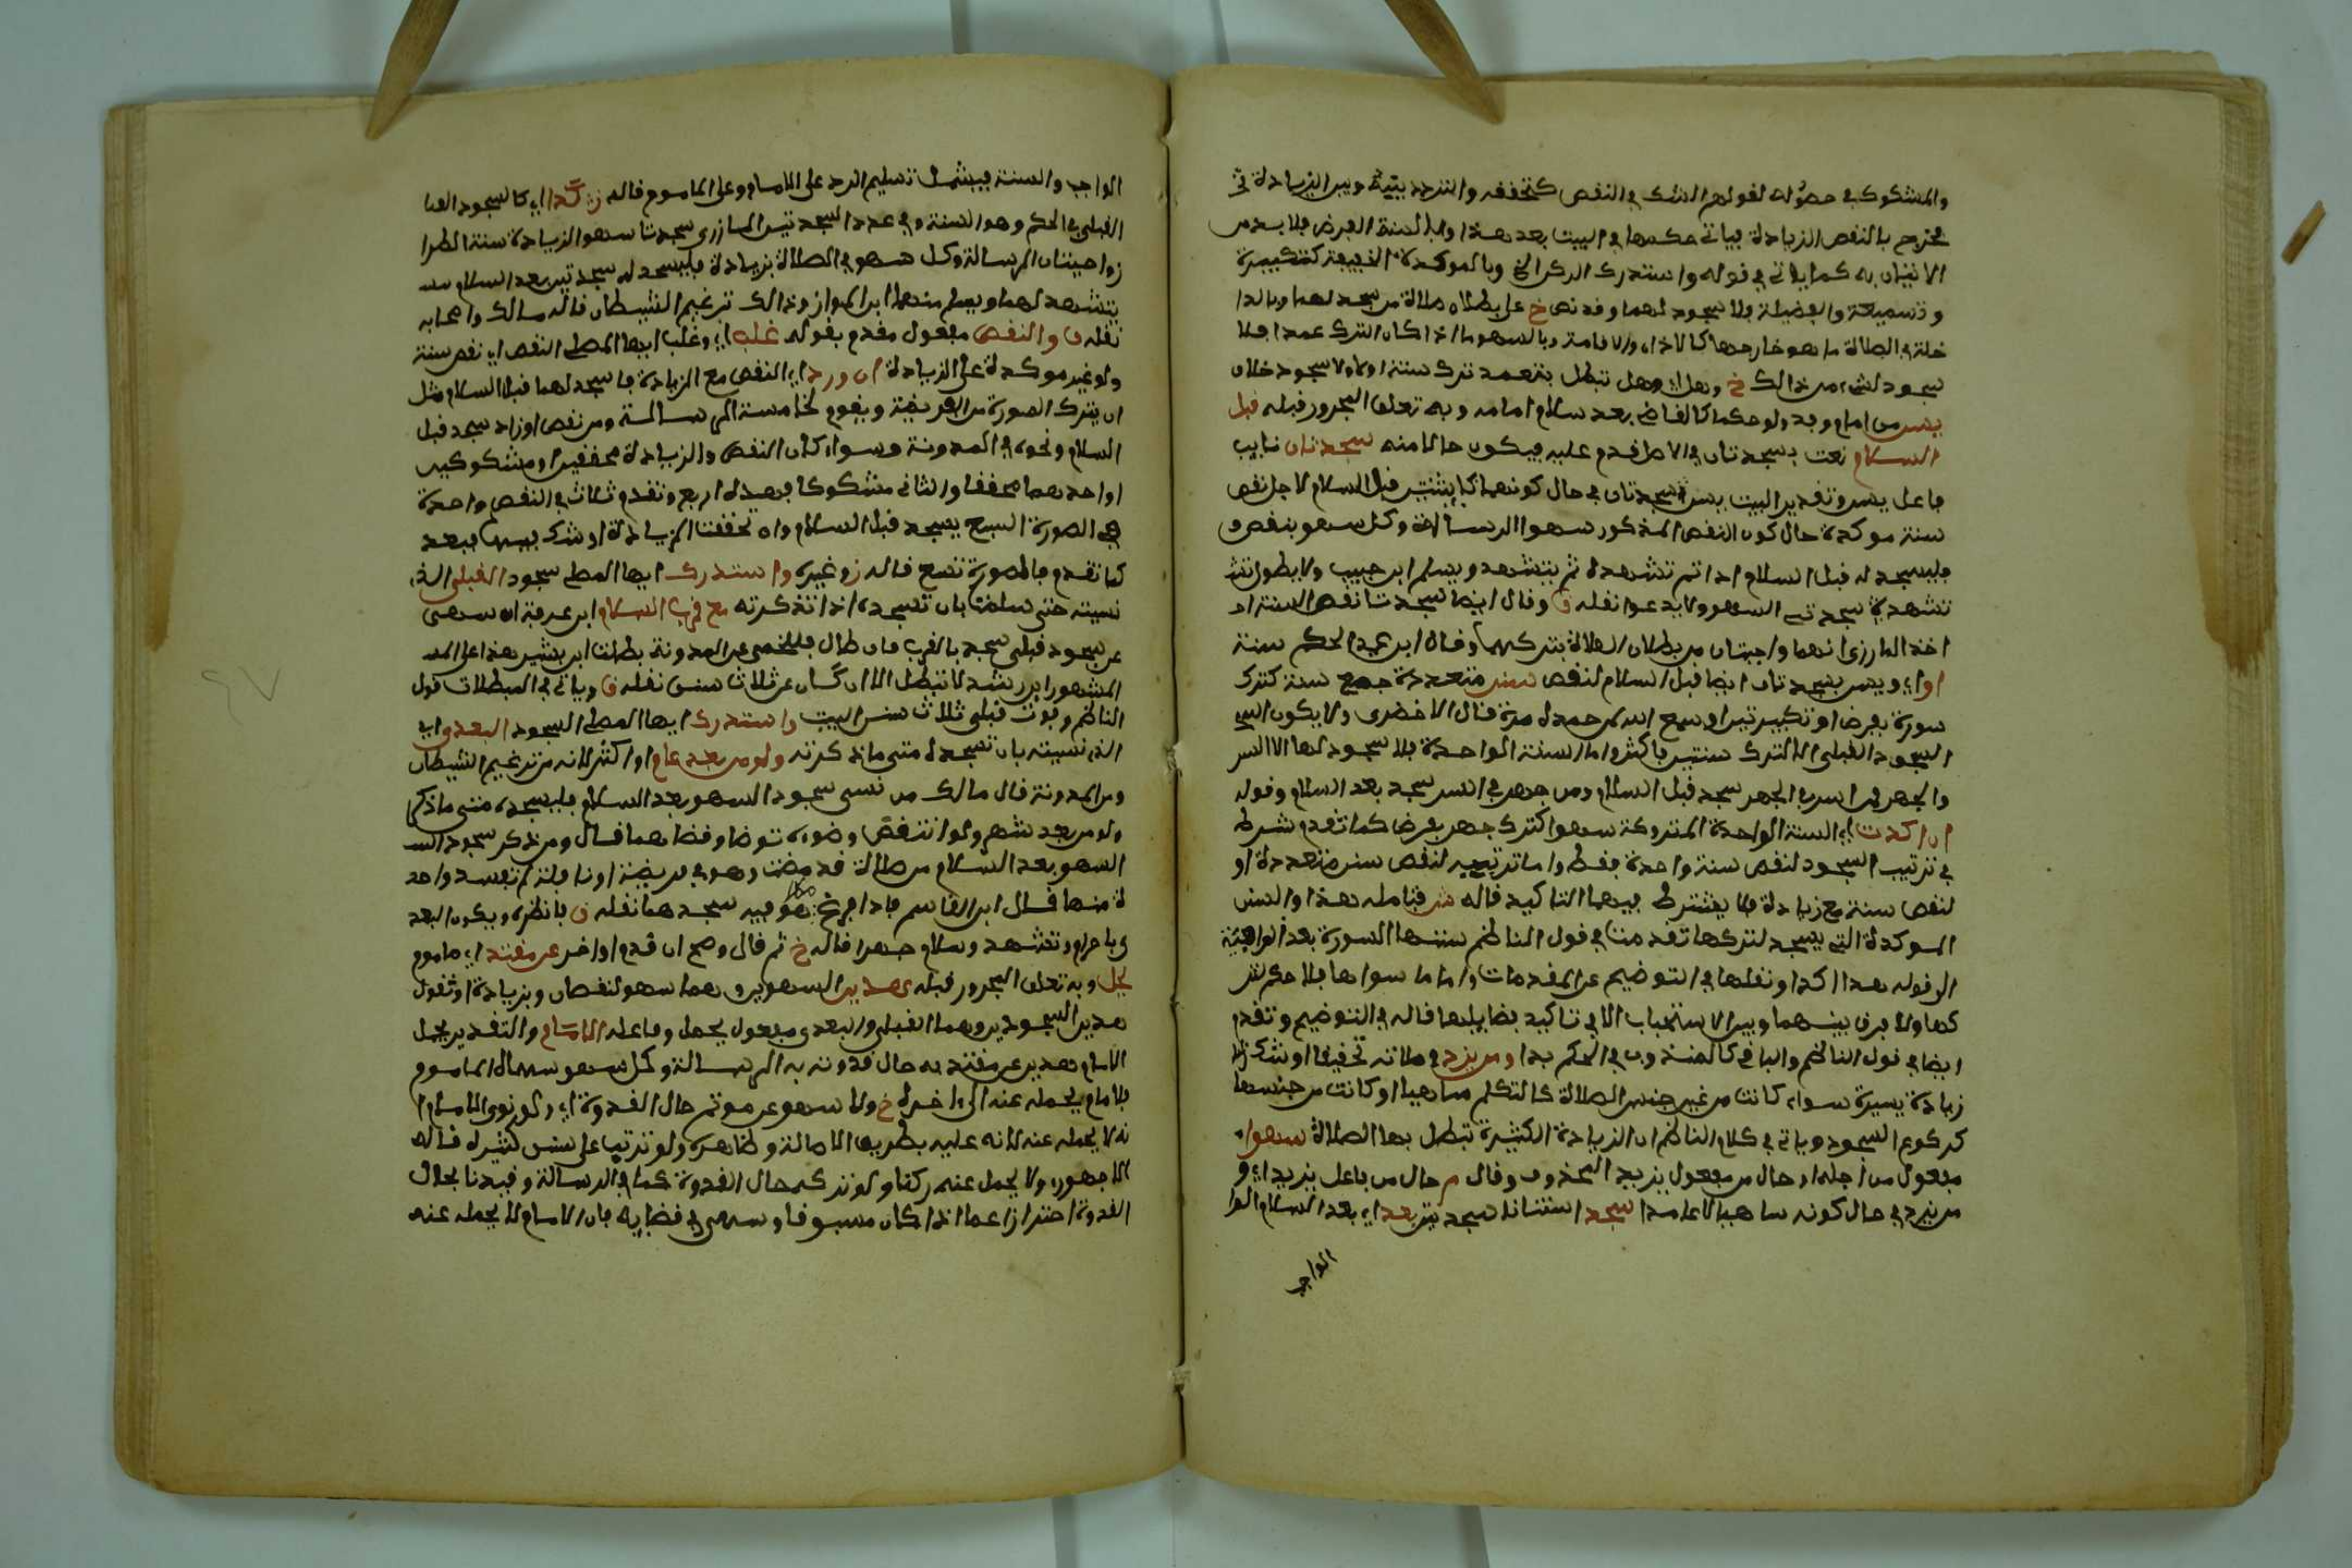 والمشكوك في حصوله لقولهم الشك في النقص كتحققه والتردد بينه وبين الزيادة
فخرج بالنقص الزيادة فياتي حكمها في البيت بعد هذا وبالسنة الفرض فلا بد من
الاتيان به كما ياتي في قوله واستدرك الركن الخ وبالموكدة الخفيفة كتكبيرة
وتسميعة والفضيلة فلا سجود لهما وقد نص خ على بطلان صلاة من سجد لهما وبالدا
خلة في الصلاة ما هو خارجها كالاذان والاقامة وبالسهو ما اذا كان الترك عمدا فلا
سجود لشيء من ذالك خ وهل تبطل بتعمد ترك سنة اولا ولا سجود خلاف
يسن من امام وفذ ولو حكما كالقاضي بعد سلام امامه وبه تعلق المجرور قبله قبل
السلام نعت لسجدتان في الاصل قدم عليه فيكون حالا منه سجدتان نايب
فاعل يسن وتقدير البيت يسن سجدتان في حال كونهما كاينتين قبل السلام لاجل نقص
سنة موكدة حال كون النقص المذكور سهوا الرسالة وكل سهو بنقص
فليسجد له قبل السلام اذا تم تشهده ثم يتشهد ويسلم ابن حبيب ولا يطول
تشهده سجدتي السهو ولا يدعوا نقله ق وقال ايضا سجدتا نقص السنة
اخذ المازري انهما واجبتان من بطلان الصلاة بتركهما وقال ابن عبد الحكم سنة
او اي ويسن سجدتان ايضا قبل السلام لنقص سنن متعددة جمع سنة كترك
سورة بفرض او تكبيرتين او سمع الله لمن حمده مرة قال الاخضري ولا يكون
السجود القبلي الا لترك سنتين فاكثر واما السنة الواحدة فلا سجود لها الا السر
والجهر فمن اسر في الجهر سجد قبل السلام ومن جهر في السر سجد بعد السلام وقوله
ان اكدت اي السنة الواحدة المتروكة سهوا كترك جهر بفرض كما تقدم شرط
في ترتيب السجود لنقص سنة واحدة فقط واما ترتيبه لنقص سنن متعددة او
لنقص سنة مع زيادة فلا يشترط فيهما التاكيد قاله فتامله هذا والسنن
الموكدة التي يسجد لتركها تقدمت في قول الناظم سننها السورة بعد الواقية
الى قوله هذا اكدا ونقلها في التوضيح عن المقدمات واما ما سواها فلا حكم
كها ولا فرق بينهما وبين الاستحباب الا في تاكيد فضايلها قاله في التوضيح وتقدم
ايضا في قول الناظم والباقي كالمندوب في الحكم بدا ومن يزد في صلاته تحقيقا او شكا
زيادة يسيرة سواء كانت من غير جنس الصلاة كالتكلم ساهيا او كانت من جنسها
كركوع السجود وياتي في كلام الناظم ان الزيادة الكثيرة تبطل بها الصلاة سهوا
مفعول من اجله او حال من مفعول يزيد المحذوف وقال م حال من فاعل يزيد اي و
من يزد في حال كونه ساهيا لا عامدا سجد استنانا سجدتين بعد اي بعد السلام الوا
الواجب
الواجب والسنة فيشمل تسليم الرد على الامام وعلى الماموم قاله ز كذا اي كالسجود
القبلي في الحكم وهو السنة وفي عدد السجدتين المازري سجدتا سهو الزيادة سنة
واجبتان الرسالة وكل سهو في الصلاة بزيادة فليسجد له سجدتين بعد السلام
يتشهد لهما ويسلم منهما ابن المواز وذالك ترغيم الشيطان قاله مالك واصحابه
نقله ق والنقص مفعول مقدم بقوله غلب اي وغلب ايها المصلي النقص اي نقص سنة
ولو غير موكدة على الزيادة ان ورد اي النقص مع الزيادة فاسجد لهما قبل السلام مثل
ان يترك السورة من الفريضة ويقوم لخامسة الرسالة ومن نقص وزاد سجد قبل
السلام ونحوه في المدونة وسواء كان النقص والزيادة محققين او مشكوكين
او احدهما محققا والثاني مشكوكا فهذه اربع وتقدم ثلاث في النقص واحدة
في الصورة السبع يسجد قبل السلام وان تحققت الزيادة او شك فيها فبعد
كما تقدم فالصورة تسع قاله ز وغيره واستدرك ايها المصلي سجود القبلي الذي
نسيته حتى سلمت بان تسجده اذا تذكرته مع قرب السلام ابن عرفة ان سهى
عن سجود قبلي سجد بالقرب فان طال فللخمي عن المدونة بطلت ابن بشير هذا على
المشهور ابن رشد لا تبطل الا ان كان عن ثلاث سنن نقله ق وياتي في المبطلات قول
الناظم وفوت قبلي ثلاث سنن البيت واستدرك ايها المصلي السجود البعدي
الذي نسيته بان تسجده متى ما ذكرته ولو من بعد عام او اكثر لانه من ترغيم الشيطان
ومن المدونة قال مالك من نسي سجود السهو بعد السلام فليسجده متى ما ذكر
ولو من بعد شهر ولو انتقض وضوءه توضا وقضاهما قال ومن ذكر سجود
السهو بعد السلام من صلاة قد مضت وهو في فريضة او نافلة لم تفسد واحد
ة منهما قال ابن القاسم فاذا فرغ مما هو فيه سجدهما نقله ق فانظره ويكون البعد
ي باحرام وتشهد وسلام جهرا قاله خ ثم قال وصح ان قدم او اخر عن مقتد اي ماموم
يحمل وبه تعلق المجرور قبله هذين السهوين وهما سهو لنقصان وبزيادة او تقول
هذين السجودين وهما القبلي والبعدي مفعول يحمل وفاعله الامام والتقدير يحمل
الامام هذين عن مقتد به حال قدوته به الرسالة وكل سهو سهاه الماموم
فالامام يحمله عنه الى ءاخره خ ولا سهو عن موتم حال القدوة اي ولو نوى الامام
نه لا يحمله عنه لانه عليه بطريق الاصالة وظاهره ولو ترتب على سنن كثيرة قاله
الاجهوري ولا يحمل عنه ركنا ولو تركه حال القدوة كما في الرسالة وقيدنا بحال
القدوة احترازا عما اذا كان مسبوقا وسهى في قضايه فان الامام لا يحمله عنه
٤٧